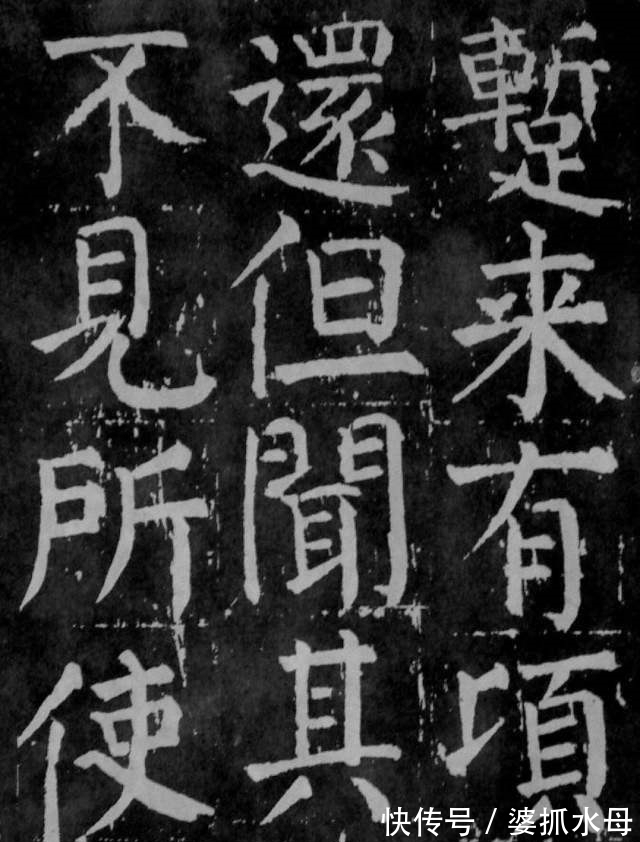 蹔来有頃
還但聞其
不見所使
快传号 / 婆抓水母